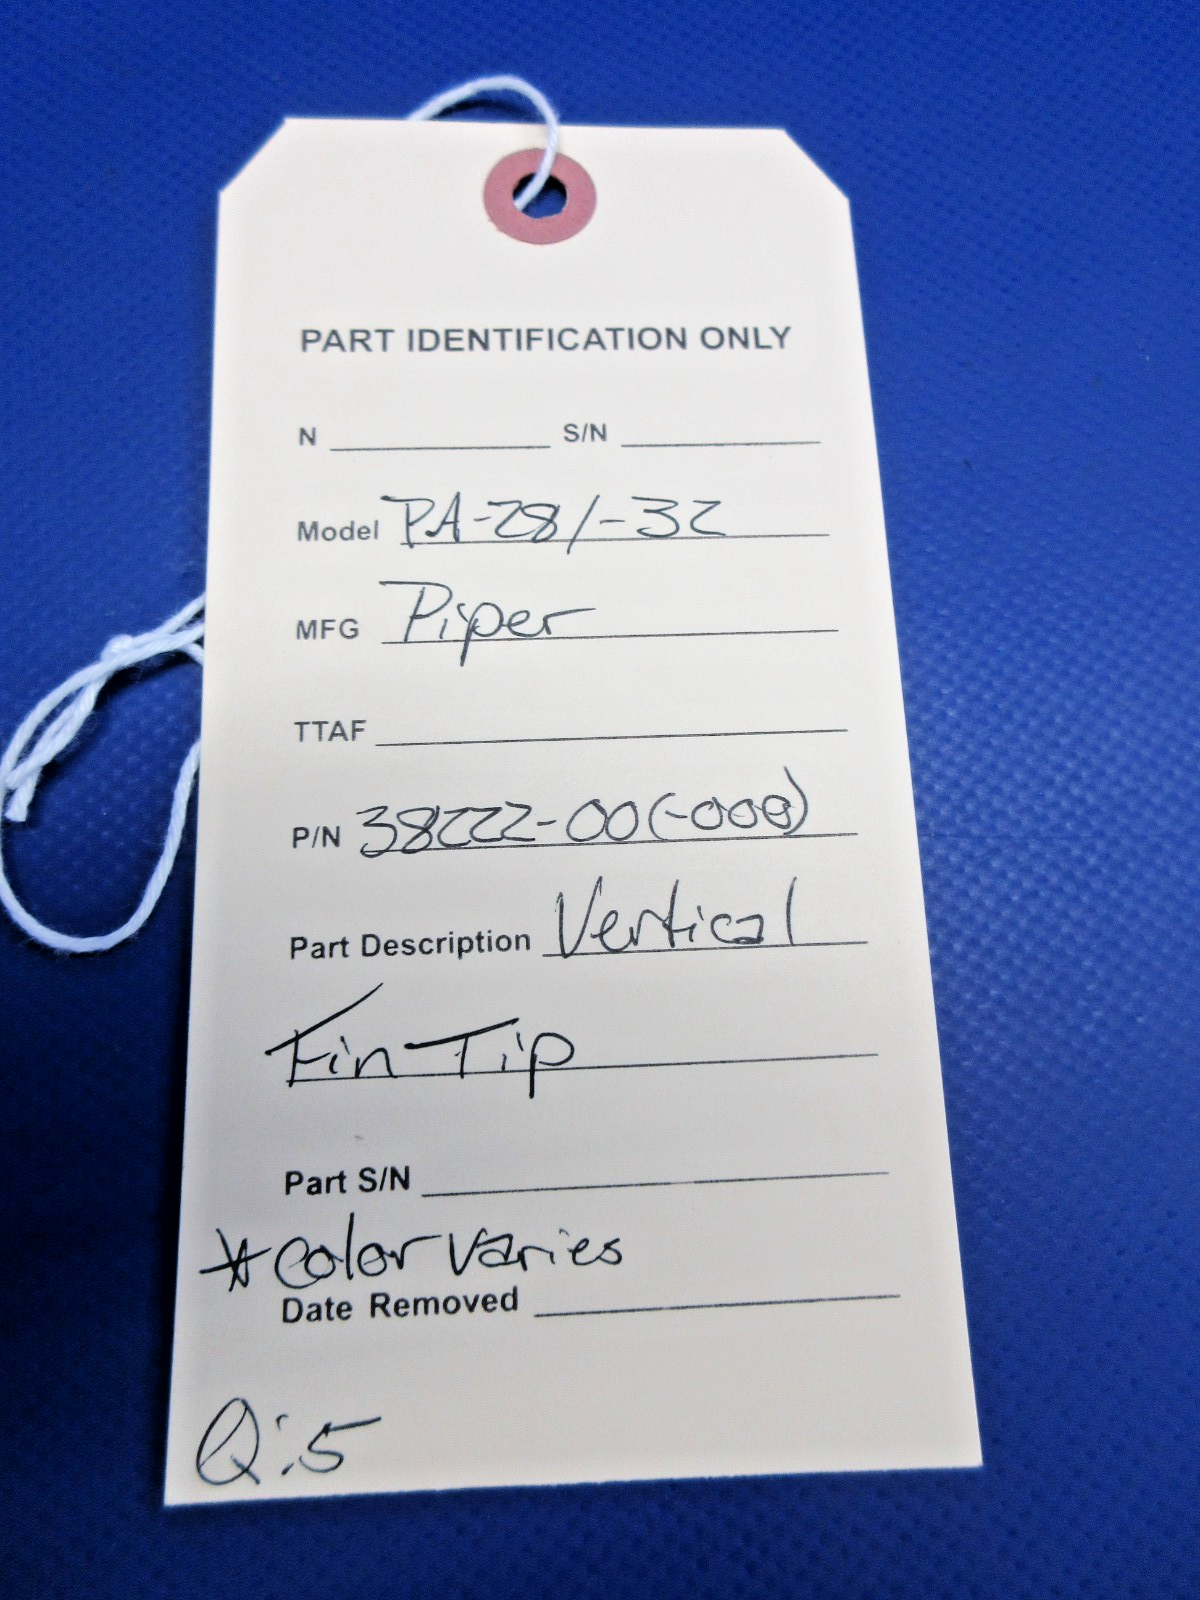 PART IDENTIFICATION ONLY
N S/N
Model PA-28/-32
MFG Piper
TTAF
P/N 38222-00(-000)
Part Description Vertical
Fin Tip
Part S/N
*color varies
Date Removed
Q:5